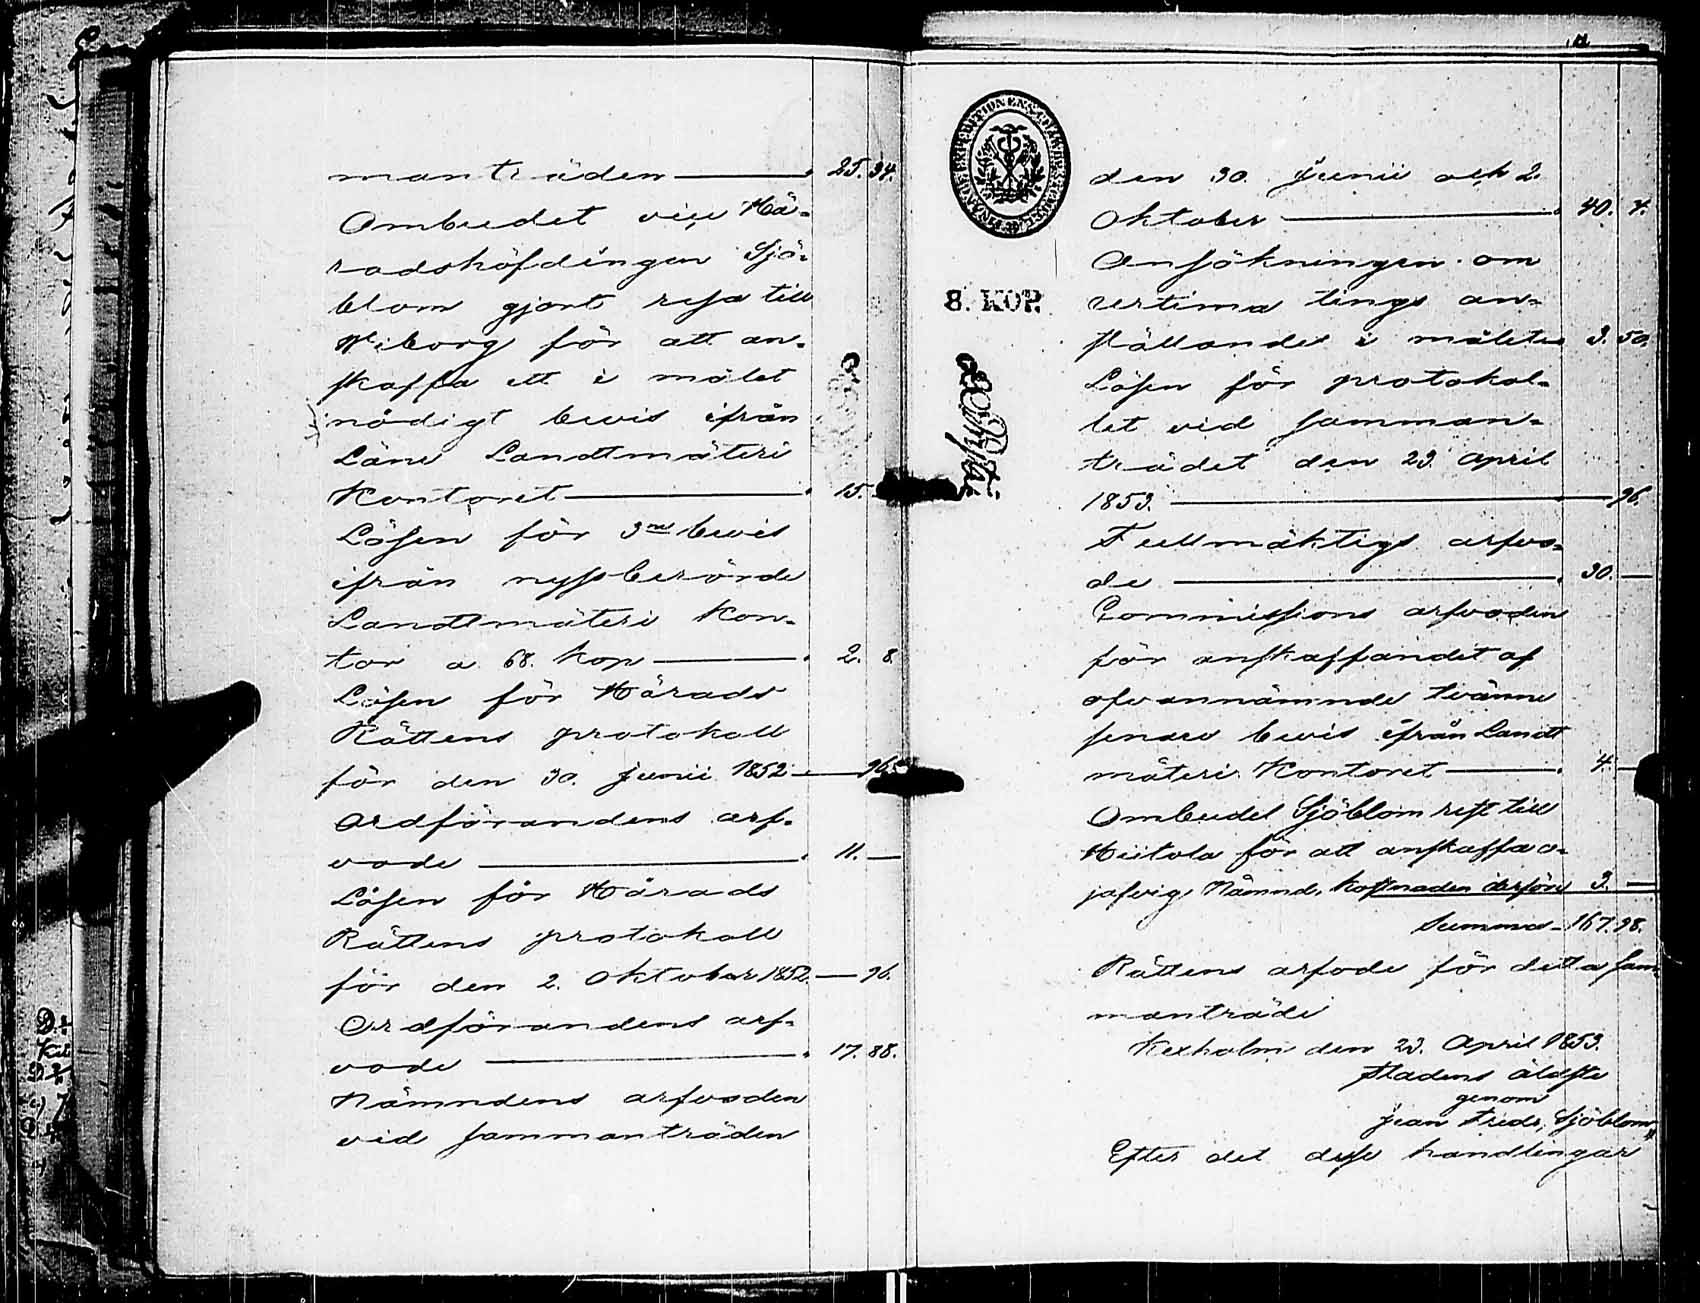 manträden — 25. 34.
Ombudet vice Hä-
radshöfdingen Sjö-
blom gjort resa till
Wiborg för att an-
skaffa ett i målet
nödigt bevis ifrån
Läne Landtmäteri
Kontoret — 15. —
Lösen för 3ne bevis
ifrån nyssberörde
Landtmäteri Kon-
tor a 68. kop — 2. 8.
Lösen för Härads
Rättens protokoll
för den 30. Junii 1852 — 96.
Ordförandens arf-
vode — 11. —
Lösen för Härads
Rättens protokoll
för den 2. Oktober 1852. — 96.
Ordförandens arf-
vode — 17. 88.
Nämndens arfvoden
vid sammanträden
8. KOP.
den 30. Junii och 2.
Oktober — 40. 4.
Ansökningen om
urtima tings an-
ställandet i målet — 3. 50.
Lösen för protokol-
let vid samman-
trädet den 23. April
1853. — 96.
Fullmäktigs arfvo-
de — 30. —
Commissions arfvoden
för anskaffandet af
ofvannämnde tvänne
senare bevis ifrån Landt
mäteri Kontoret — 4. —
Ombudet Sjöblom rest till
Hiitola för att anskaffa o-
jäfvig Nämnd, kostnaden derföre 3. —
Summa 167. 98.
Rättens arfode för detta sam-
manträde
Kexholm den 23. April 1853.
Stadens äldste
genom
Jean Fredr. Sjöblom"
Efter det desse handlingar